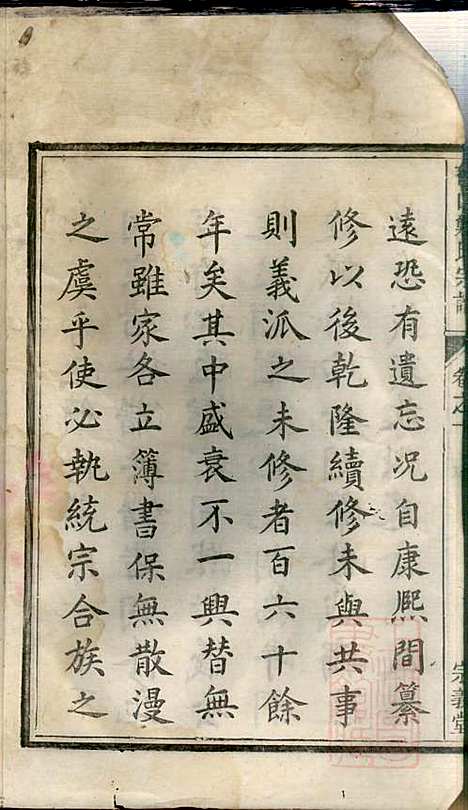 遠恐有遺忘况自康熙間纂
修以後乾隆續修未與共事
則義派之未修者百六十餘
年矣其中盛衰不一興替無
常雖家各立簿書保無散漫
之虞乎使必執統宗合族之
氏宗譜
卷之一
宗義堂